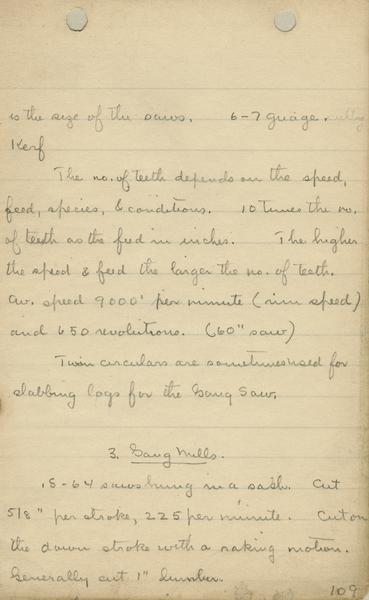 is the size of the saws. 6-7 guage.
Kerf
The no. of teeth depends on the speed,
feed, species, & conditions. 10 times the no.
of teeth as the feed in inches. The higher
the speed & feed the larger the no. of teeth.
av. speed 9000' per minute (rim speed)
and 650 revolutions. (60" saw)
Twin circulars are sometimes used for
slabbing logs for the Gang Saw.
3. Gang Mills.
18-64 saws hung in a sash. Cut
5/8" per stroke, 225 per minute. Cut on
the down stroke with a raking motion.
Generally cut 1" lumber.
109